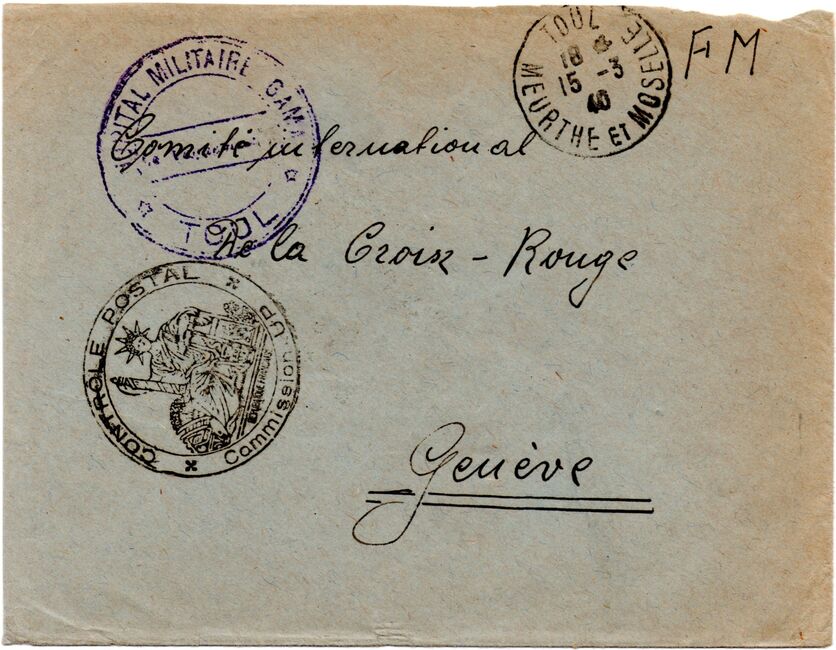 TOUL
18
15 -3
40
MEURTHE ET MOSELLE
FM
HOPITAL MILITAIRE GAMA
TOUL
Comité international
de la Croix-Rouge
CONTRÔLE POSTAL
Commission UP
Genève